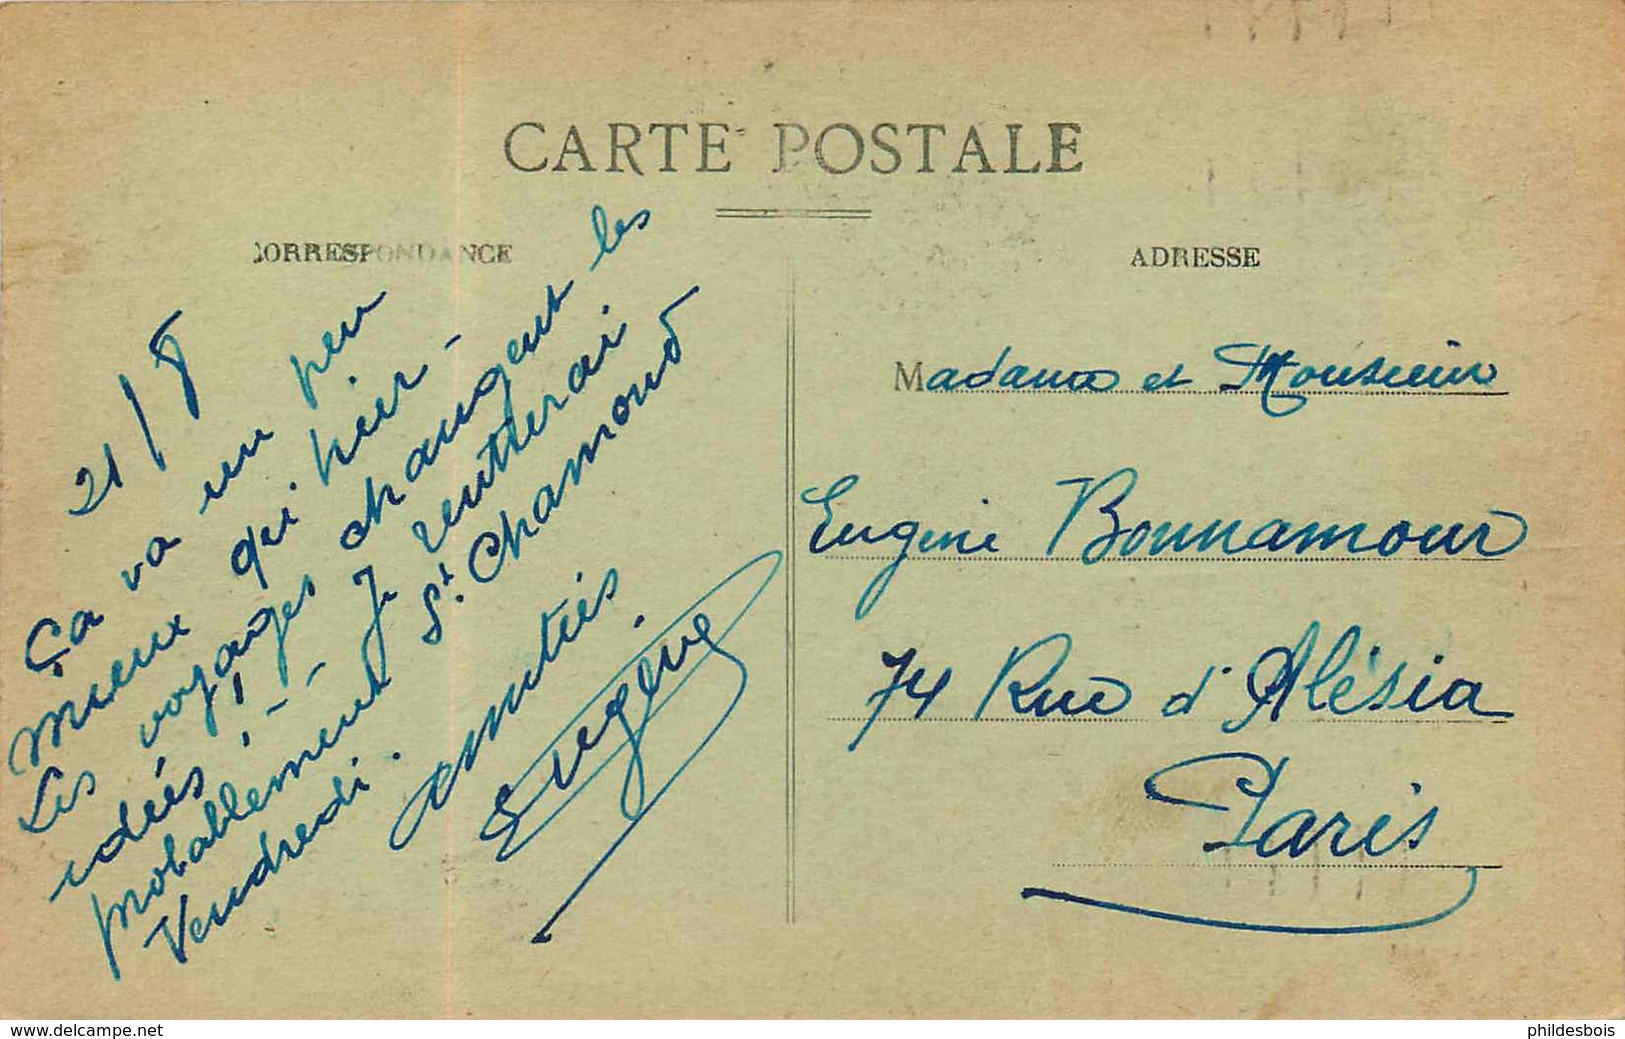 CARTE POSTALE
CORRESPONDANCE
ADRESSE
21/8
Ça va un peu
mieux qu'hier -
Les voyages changent les
idées ! - - Je rentrerai
probablement St. Chamond
Vendredi.
Amitiés.
Eugène
Madame et Monsieur
Eugène Bonnamour
74 Rue d'Alésia
Paris
www.delcampe.net
phildesbois